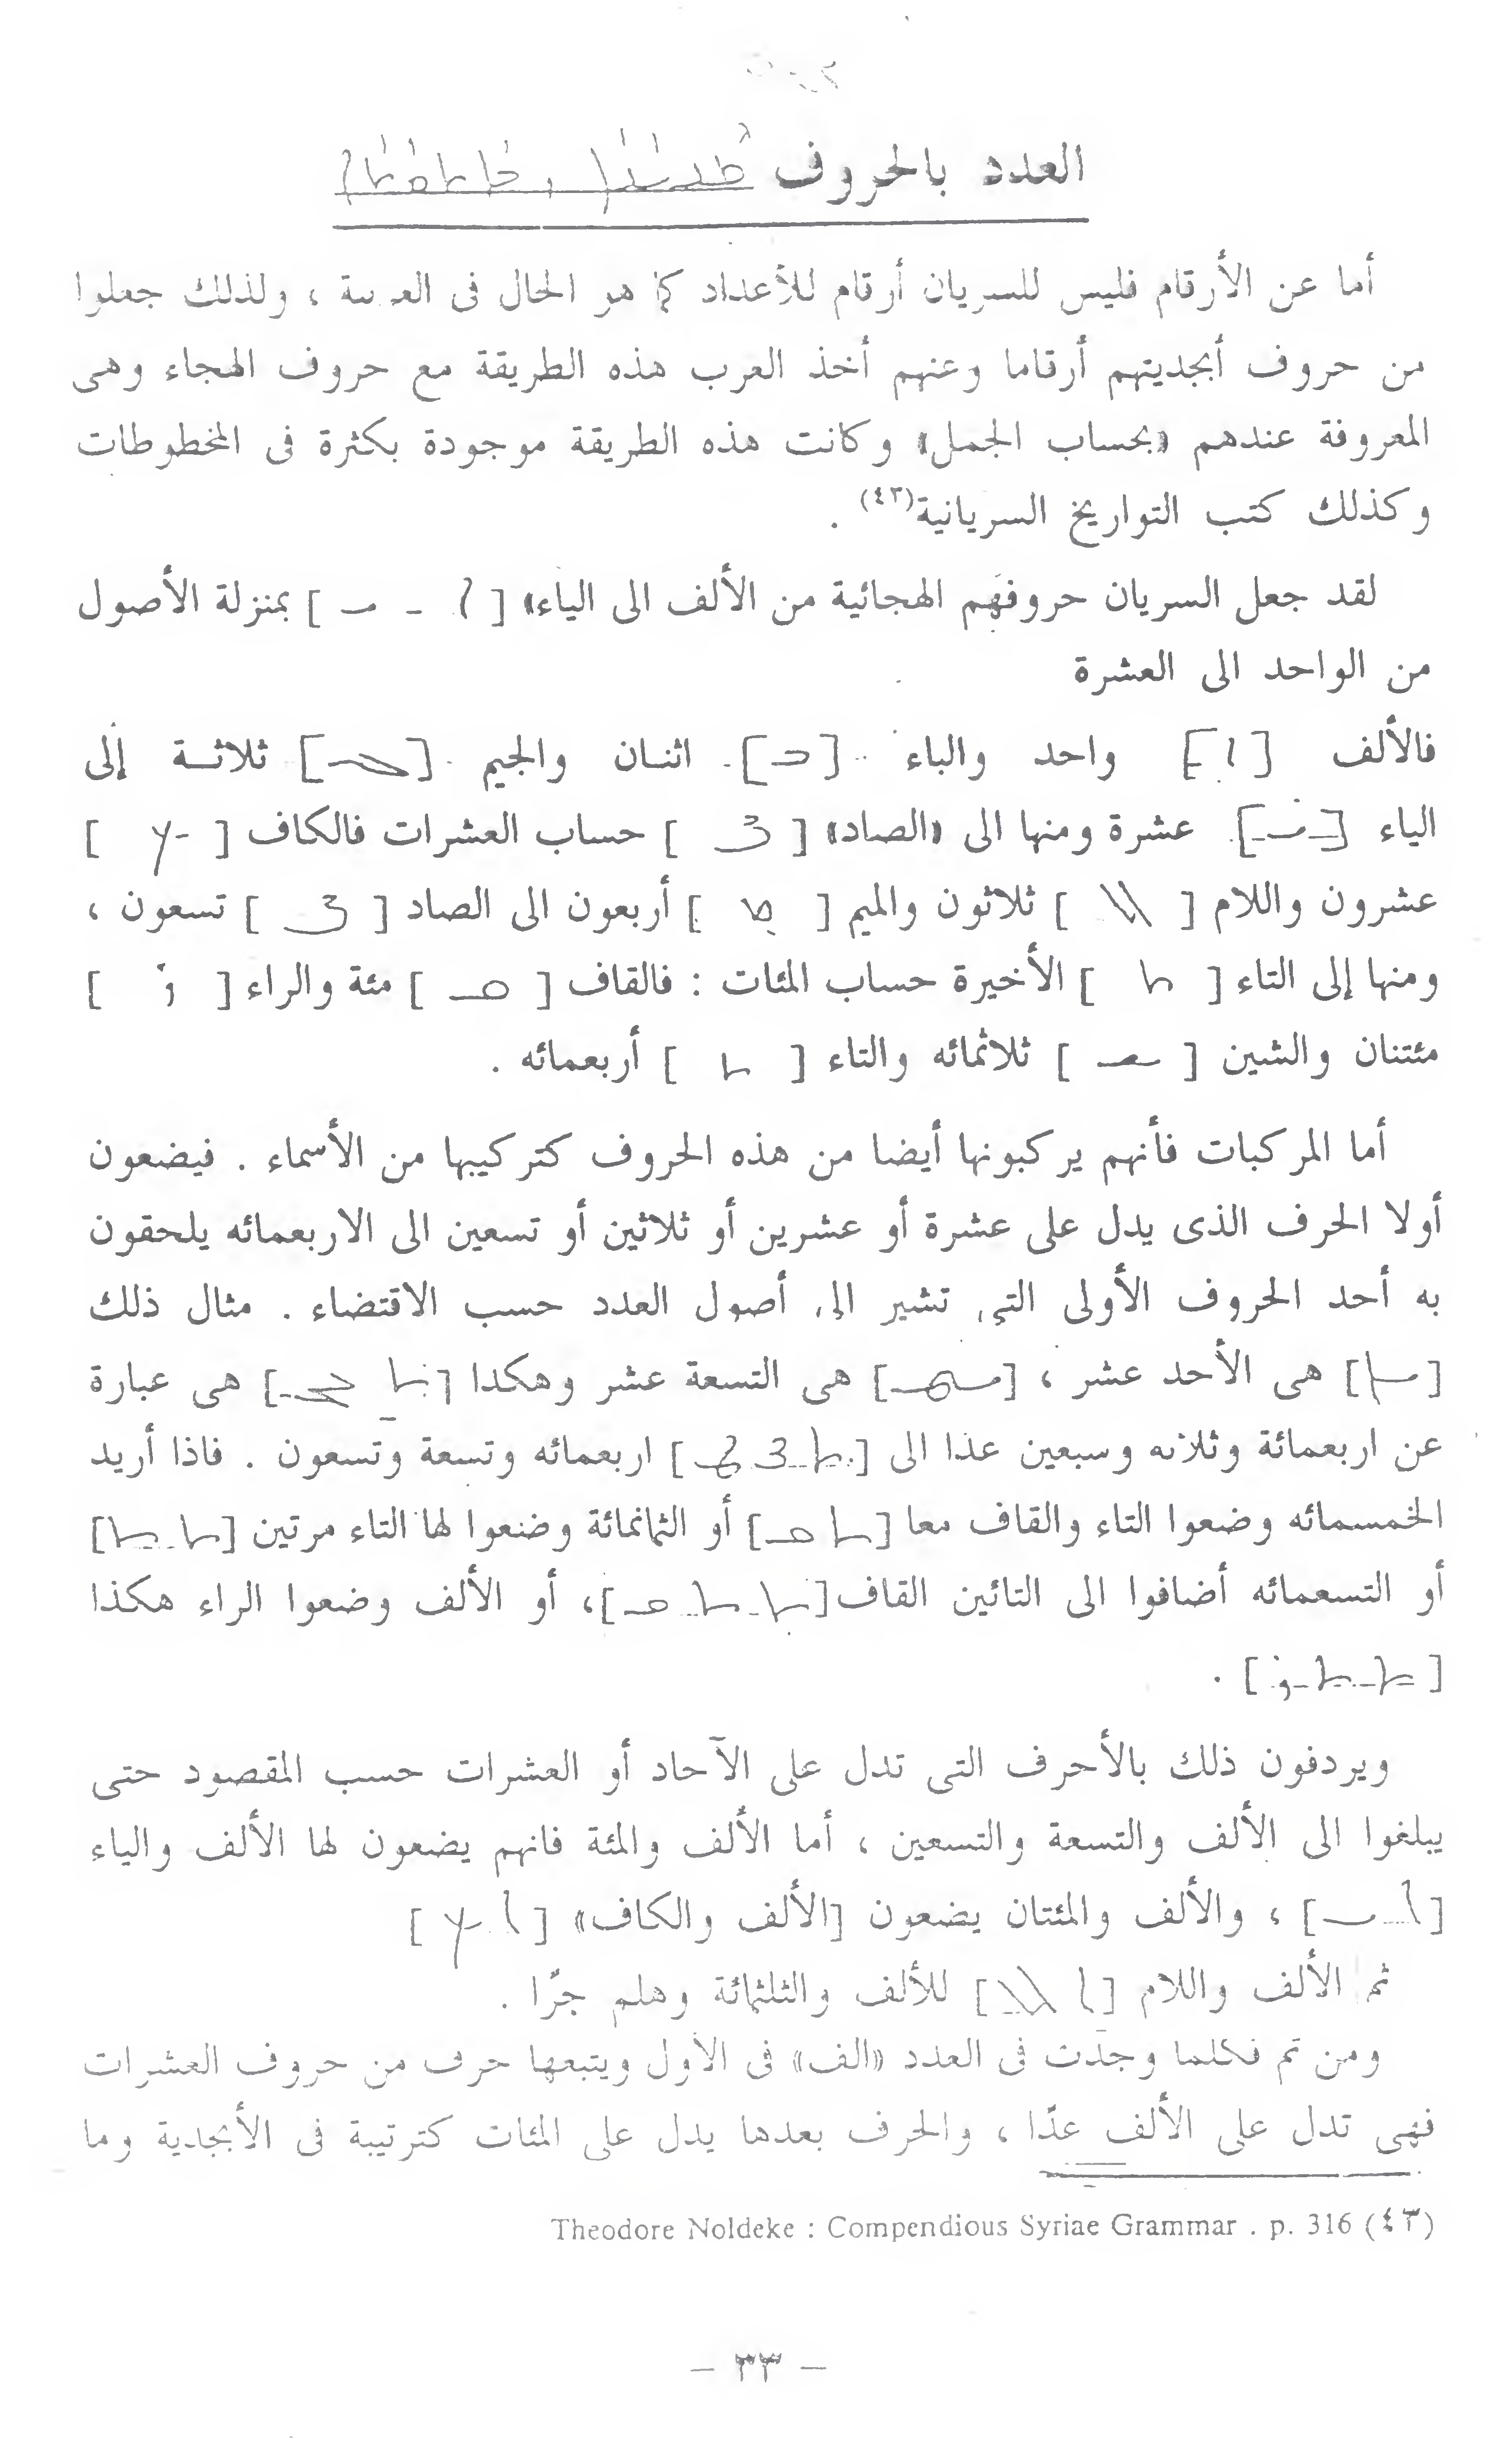 العدد بالحروف
أما عن الأرقام فليس للسريان أرقام للأعداد كما هو الحال فى ، ولذلك جعلوا
من حروف أبجديتهم أرقاما وعنهم أخذ العرب هذه الطريقة مع حروف الهجاء وهى
المعروفة عندهم «بحساب الجمل» وكانت هذه الطريقة موجودة بكثرة فى المخطوطات
وكذلك كتب التواريخ السريانية(٤٣) .
لقد جعل السريان حروفهم الهجائية من الألف الى الياء» [ ܐ - ܝ ] بمنزلة الأصول
من الواحد الى العشرة
فالألف [ܐ] واحد والباء [ܒ] اثنان والجيم [ܓ] ثلاثة إلى
الياء [ܝ] عشرة ومنها الى «الصاد» [ ܨ ] حساب العشرات فالكاف [ ܟ ]
عشرون واللام [ ܠ ] ثلاثون والميم [ ܡ ] أربعون الى الصاد [ ܨ ] تسعون ،
ومنها إلى التاء [ ܬ ] الأخيرة حساب المئات : فالقاف [ ܩ ] مئة والراء [ ܪ ]
مئتنان والشين [ ܫ ] ثلاثمائه والتاء [ ܬ ] أربعمائه .
أما المركبات فأنهم يركبونها أيضا من هذه الحروف كتركيبها من الأسماء . فيضعون
أولا الحرف الذى يدل على عشرة أو عشرين أو ثلاثين أو تسعين الى الاربعمائه يلحقون
به أحد الحروف الأولى التى تشير الى أصول العدد حسب الاقتضاء . مثال ذلك
[ܝܐ] هى الأحد عشر ، [ܝܛ] هى التسعة عشر وهكذا [ ] هى عبارة
عن اربعمائة وثلاثه وسبعين عذا الى [ܬܨܛ] اربعمائه وتسعة وتسعون . فاذا أريد
الخمسمائه وضعوا التاء والقاف معا [ܬܩ] أو الثمانمائة وضعوا لها التاء مرتين [ܬܬ]
أو التسعمائه أضافوا الى التائين القاف [ܬܬܩ]، أو الألف وضعوا الراء هكذا
[ܬܬܪ] .
ويردفون ذلك بالأحرف التى تدل على الآحاد أو العشرات حسب المقصود حتى
يبلغوا الى الألف والتسعة والتسعين ، أما الألف والمئة فانهم يضعون لها الألف والياء
[ܐܝ] ، والألف والمئتان يضعون [الألف والكاف» [ܐܟ]
ثم الألف واللام [ܐܠ] للألف والثلثمائة وهلم جرّا .
ومن ثم فكلما وجدت فى العدد «الف» فى الأول ويتبعها حرف من حروف العشرات
فهى تدل على الألف عدّا ، والحرف بعدها يدل على المئات كترتيبة فى الأبجدية وما
(٤٣) Theodore Noldeke : Compendious Syriae Grammar . p. 316
– ٣٣ –